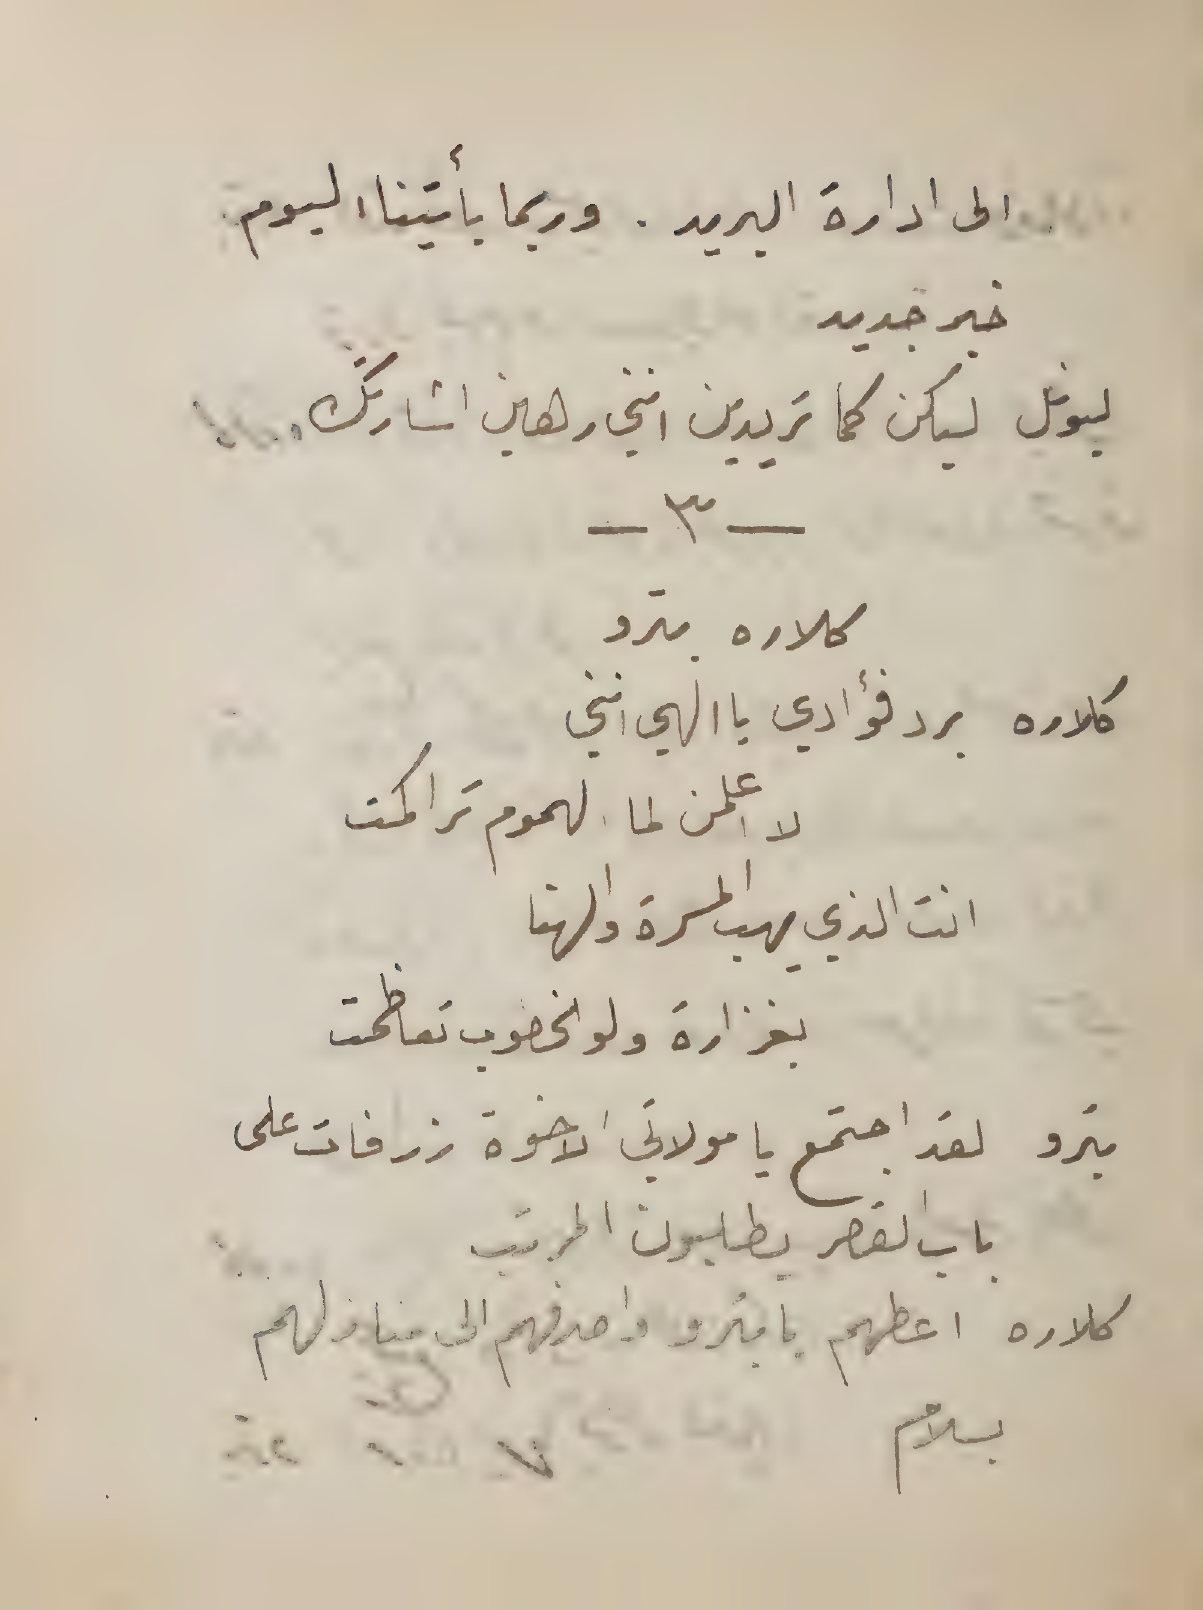 الى ادارة البريد . وربما يأتينا اليوم
خبر جديد
ليونل ليكن كما تريدين انني رهين اشارتك
— ٣ —
كلاره بترو
كلاره برد فؤادي يا الهي انني
لا اعلمن لما الهموم تراكمت
انت الذي يهب المسرة والهنا
بغزارة ولو الخطوب تعاظمت
بترو لقد اجتمع يا مولاتي الاخوة زرافات على
باب القصر يطلبون المرتب
كلاره اعطهم يا بترو واصرفهم الى منازلهم
بسلام